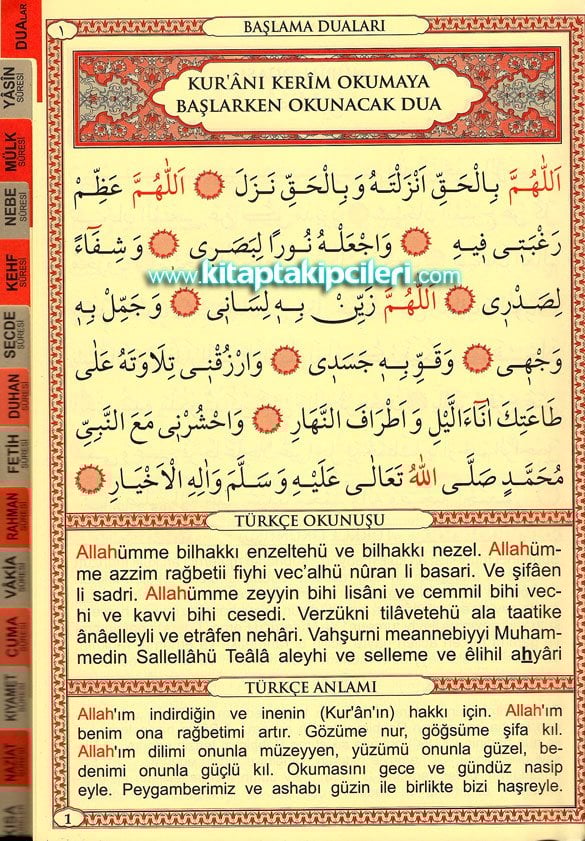 DUALAR
YÂSİN SÛRESİ
MÜLK SÛRESİ
NEBE SÛRESİ
KEHF SÛRESİ
SECDE SÛRESİ
DUHAN SÛRESİ
FETİH SÛRESİ
RAHMAN SÛRESİ
VÂKIA SÛRESİ
CUMA SÛRESİ
KIYAMET SÛRESİ
NAZİAT SÛRESİ
KISA
١
BAŞLAMA DUALARI
KUR'ÂNI KERÎM OKUMAYA
BAŞLARKEN OKUNACAK DUA
اَللّٰهُمَّ بِالْحَقِّ اَنْزَلْتَهُ وَبِالْحَقِّ نَزَلَ اَللّٰهُمَّ عَظِّمْ
رَغْبَتِى فِيهِ وَاجْعَلْهُ نُورًا لِبَصَرِى وَشِفَٓاءً
www.kitaptakipcileri.com
لِصَدْرِى اَللّٰهُمَّ زَيِّنْ بِهِ لِسَانِى وَجَمِّلْ بِهِ
وَجْهِى وَقَوِّ بِهِ جَسَدِى وَارْزُقْنِى تِلَاوَتَهُ عَلٰى
طَاعَتِكَ اٰنَٓاءَ الَّيْلِ وَاَطْرَافَ النَّهَارِ وَاحْشُرْنِى مَعَ النَّبِىِّ
مُحَمَّدٍ صَلَّى اللّٰهُ تَعَالٰى عَلَيْهِ وَسَلَّمَ وَاٰلِهِ الْاَخْيَارِ
TÜRKÇE OKUNUŞU
Allahümme bilhakkı enzeltehü ve bilhakkı nezel. Allahüm-
me azzim rağbetii fiyhi vec'alhü nûran li basari. Ve şifâen
li sadri. Allahümme zeyyin bihi lisâni ve cemmil bihi vec-
hi ve kavvi bihi cesedi. Verzükni tilâvetehü ala taatike
ânâelleyli ve etrâfen nehâri. Vahşurni meannebiyyi Muham-
medin Sallellâhü Teâlâ aleyhi ve selleme ve êlihil ahyâri
TÜRKÇE ANLAMI
Allah'ım indirdiğin ve inenin (Kur'ân'ın) hakkı için. Allah'ım
benim ona rağbetimi artır. Gözüme nur, göğsüme şifa kıl.
Allah'ım dilimi onunla müzeyyen, yüzümü onunla güzel, be-
denimi onunla güçlü kıl. Okumasını gece ve gündüz nasip
eyle. Peygamberimiz ve ashabı güzin ile birlikte bizi haşreyle.
1